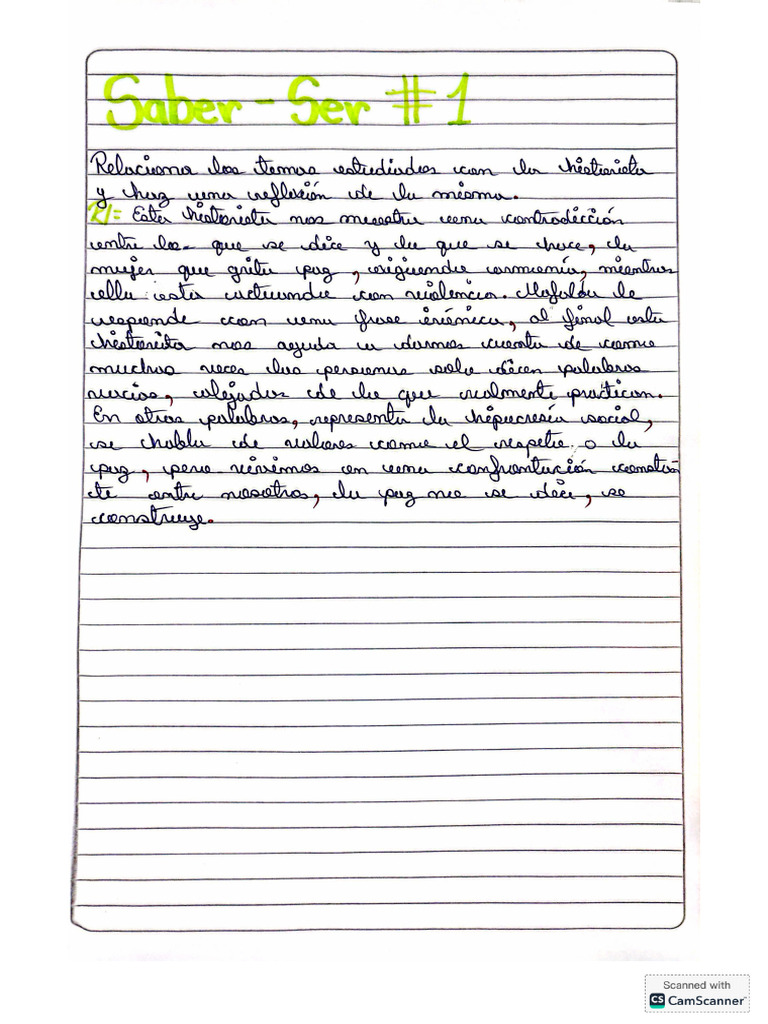 Saber - Ser #1
Relaciona los temas estudiados con la historieta
y haz una reflexión de la misma.
R/= Esta historieta nos muestra una contradicción
entre lo- que se dice y lo que se hace, la
mujer que grita paz, exiguiendo armonía, mientras
ella esta actuando con violencia. Mafalda le
responde con una frase irónica, al final esta
historieta nos ayuda a darnos cuenta de como
muchas veces las personas solo dicen palabras
vacias, alejadas de lo que realmente practican.
En otras palabras, representa la hipocresía social,
se habla de valores como el respeto o la
paz, pero vivimos en una confrontación constan
te entre nosotros, la paz no se dice, se
construye.
Scanned with
CS CamScanner